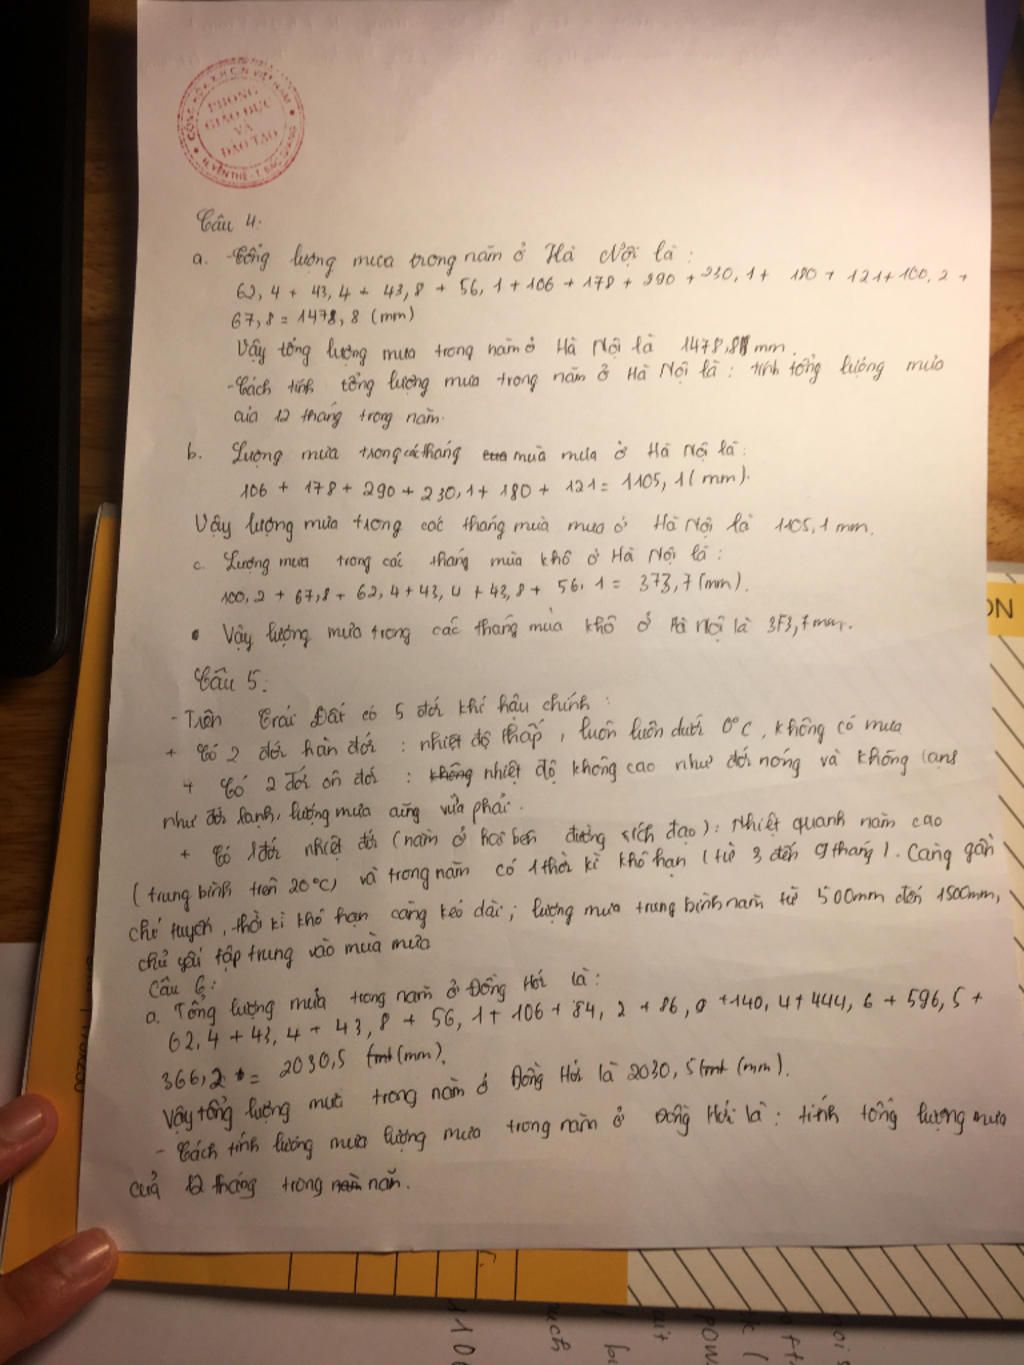 CỘNG HÒA X.H.C.N VIỆT NAM
PHÒNG
GIÁO DỤC
VÀ
ĐÀO TẠO
H. YÊN THẾ - T. BẮC GIANG
Câu 4:
a. - Tổng lượng mưa trong năm ở Hà Nội là :
62,4 + 43,4 + 43,8 + 56,1 + 106 + 178 + 290 + 230,1 + 180 + 121 + 100,2 +
67,8 = 1478,8 (mm)
Vậy tổng lượng mưa trong năm ở Hà Nội là 1478,8 mm.
- Cách tính tổng lượng mưa trong năm ở Hà Nội là : tính tổng lượng mưa
của 12 tháng trong năm.
b. Lượng mưa trong các tháng mùa mưa ở Hà Nội là :
106 + 178 + 290 + 230,1 + 180 + 121 = 1105,1 (mm).
Vậy lượng mưa trong các tháng mùa mưa ở Hà Nội là 1105,1 mm.
c. Lượng mưa trong các tháng mùa khô ở Hà Nội là :
100,2 + 67,8 + 62,4 + 43,4 + 43,8 + 56,1 = 373,7 (mm).
Vậy lượng mưa trong các tháng mùa khô ở Hà Nội là 373,7 mm.
Câu 5:
- Trên Trái Đất có 5 đới khí hậu chính :
+ Có 2 đới hàn đới : nhiệt độ thấp, luôn luôn dưới 0°C, không có mưa
+ Có 2 đới ôn đới : không nhiệt độ không cao như đới nóng và không lạnh
như đới lạnh, lượng mưa cũng vừa phải.
+ Có 1 đới nhiệt đới (nằm ở hai bên đường xích đạo) : Nhiệt quanh năm cao
(trung bình trên 20°C) và trong năm có 1 thời kì khô hạn (từ 3 đến 9 tháng). Càng gần
chí tuyến, thời kì khô hạn càng kéo dài; lượng mưa trung bình năm từ 500mm đến 1500mm,
chủ yếu tập trung vào mùa mưa
Câu 6:
a. Tổng lượng mưa trong năm ở Đồng Hới là :
62,4 + 43,4 + 43,8 + 56,1 + 106 + 84,2 + 86,9 + 140,4 + 444,6 + 596,5 +
366,2 = 2030,5 (mm).
Vậy tổng lượng mưa trong năm ở Đồng Hới là 2030,5 (mm).
- Cách tính lượng mưa lượng mưa trong năm ở Đồng Hới là : tính tổng lượng mưa
của 12 tháng trong năm.
ON